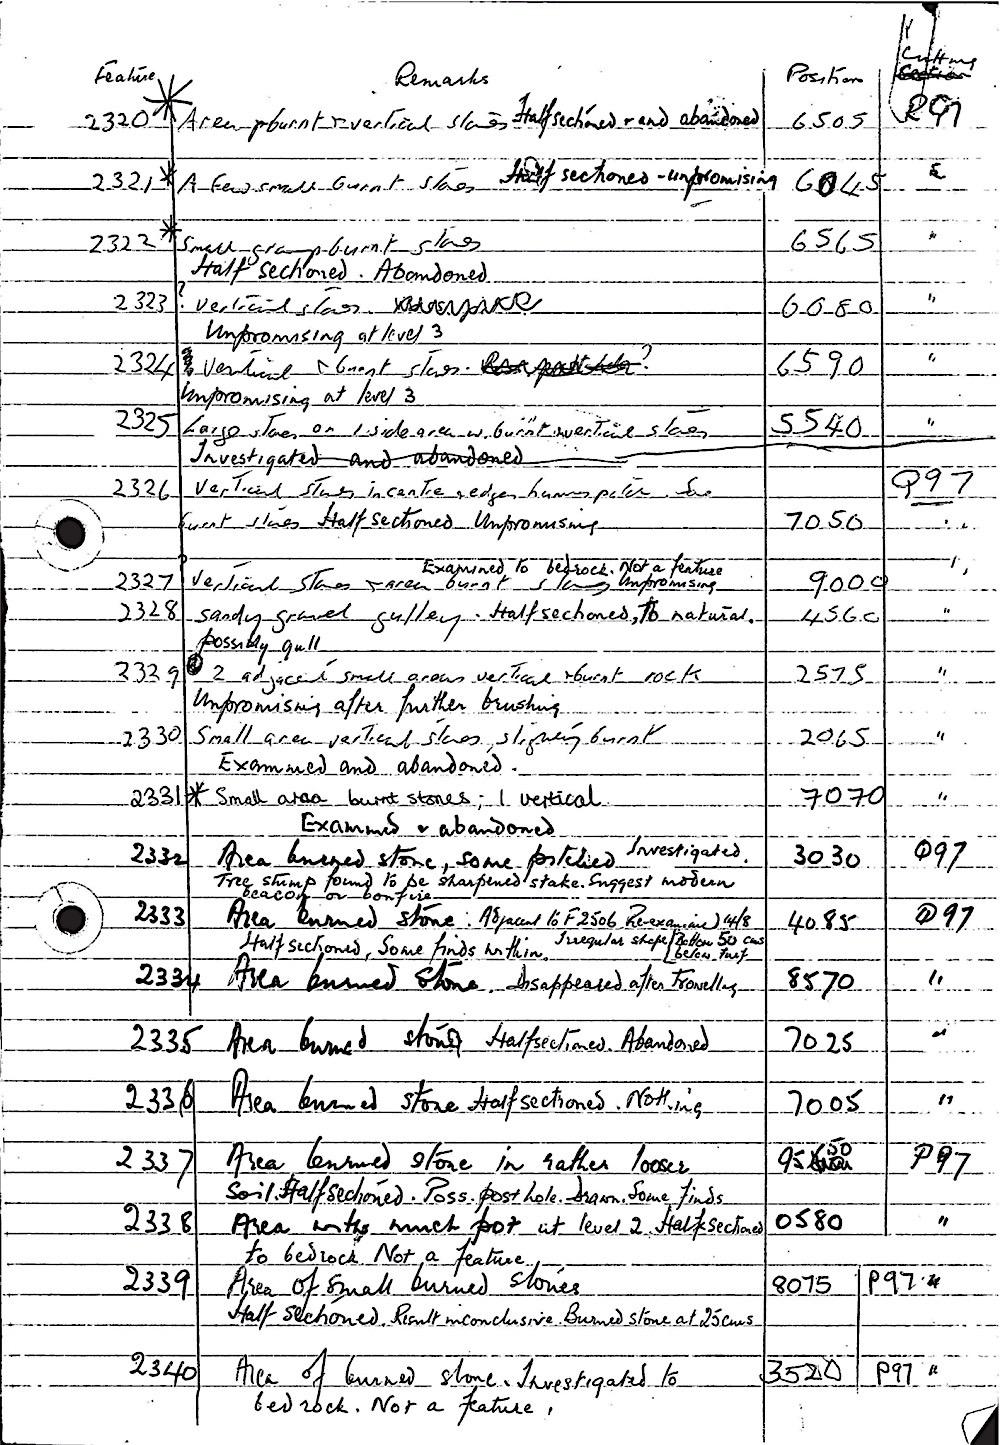 Feature Remarks Position Cutting
2320 * Area burnt & vertical stones Half sectioned and abandoned 6505 R97
2321 * A few small burnt stones Half sectioned - unpromising 6045 "
2322 * Small group burnt stones 6565 "
Half sectioned. Abandoned
2323 ? Vertical stones 6080 "
Unpromising at level 3
2324 Vertical & burnt stones. ? 6590 "
Unpromising at level 3
2325 Large stones on 1 side area w. burnt & vertical stones 5540 "
Investigated and abandoned
2326 Vertical stones in centre & edges Q97
burnt stones Half sectioned Unpromising 7050 "
Examined to bedrock. Not a feature
2327 ? Vertical stones & area burnt stones Unpromising 9000 "
2328 sandy gravel gulley. Half sectioned, to natural. 4560 "
possibly gull
2329 2 adjacent small areas vertical & burnt rock 2575 "
Unpromising after further brushing
2330 Small area vertical stones, slightly burnt 2065 "
Examined and abandoned.
2331 * Small area burnt stones; 1 vertical 7070 "
Examined & abandoned
2332 Area burned stone, some pitched Investigated. 3030 Q97
Tree stump found to be sharpened stake. Suggest modern
beacon or bonfire
2333 Area burned stone. Adjacent to F2506 Re-examined 14/8 4085 Q97
Half sectioned, Some finds within. Irregular shape Bottom 50 cms
below turf
2334 Area burned stone. Disappeared after trowelling 8570 "
2335 Area burned stone Half sectioned. Abandoned 7025 "
2336 Area burned stone Half sectioned. Nothing 7005 "
2337 Area burned stone in rather looser 9550 P97
Soil. Half sectioned. Poss. post hole. Drawn. Some finds
2338 Area with much pot at level 2. Half sectioned 0580 "
to bedrock Not a feature
2339 Area of small burned stones 8075 P97 "
Half sectioned. Result inconclusive. Burned stone at 25cms
2340 Area of burned stone. Investigated to 3520 P97 "
bedrock. Not a feature.